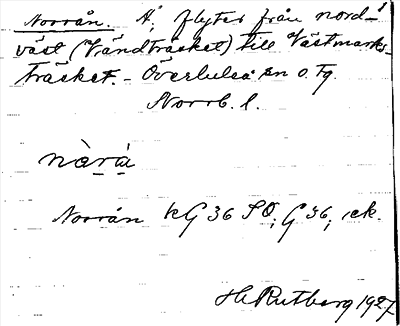 Norrån. Å, flyter från nord-
väst (Vändträsket) till Västmarks-
träsket. - Överluleå sn o. tg.
Norrb. l.
nàrå
Norrån KG 36 SO; G 36; ek.
H Rutberg 1927